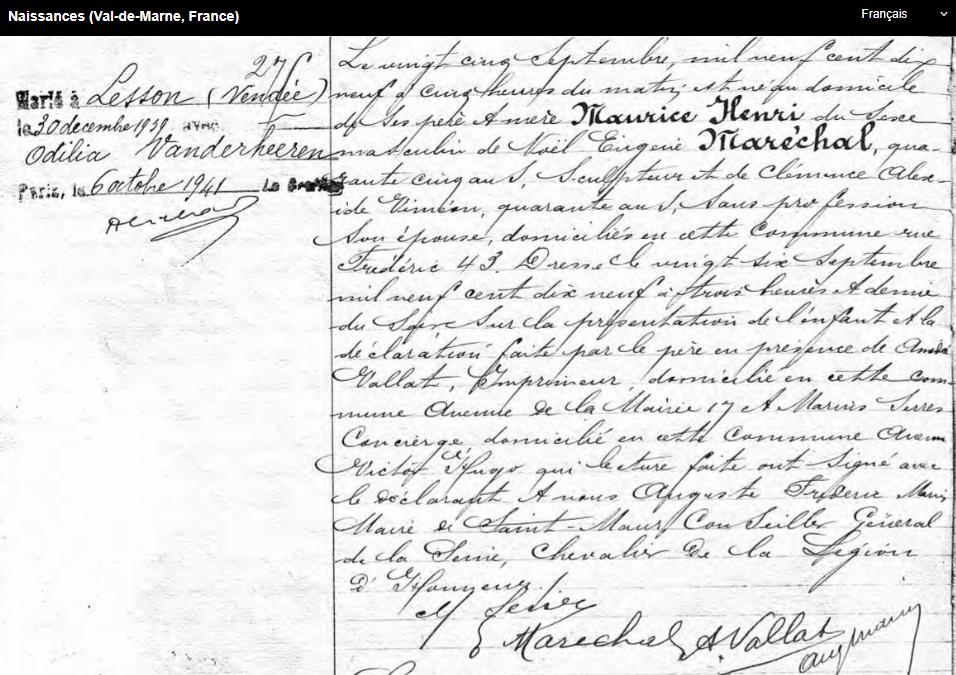 Naissances (Val-de-Marne, France)
Français
276
Marié à Lesson (Vendée)
le 30 decembre 1939 avec
Odilia Vanderheeren
Paris, le 6 octobre 1941 Le Greffier
Le vingt cinq Septembre, mil neuf cent dix
neuf à cinq heures du matin, est né au domicile
de ses père et mère Maurice Henri du Sexe
masculin de Noël Eugène Maréchal, qua-
rante cinq ans, Sculpteur et de Clémence Alex-
ide Timéon, quarante ans, Sans profession
Son épouse, domiciliés en cette Commune rue
Frédéric 43. Dressé le vingt six Septembre
mil neuf cent dix neuf à trois heures et demie
du Soir Sur la présentation de l'enfant et la
déclaration faite par le père en présence de André
Vallat, Imprimeur, domicilié en cette com-
mune Avenue de la Mairie 17 et Marius Serres
Concierge domicilié en cette Commune Avenue
Victor Hugo qui lecture faite ont Signé avec
le déclarant et nous Auguste Frédéric Marin
Maire de Saint-Maur, Conseiller Général
de la Seine, Chevalier de la Légion
d'Honneur.
Marechal A. Vallat
Aug Marin